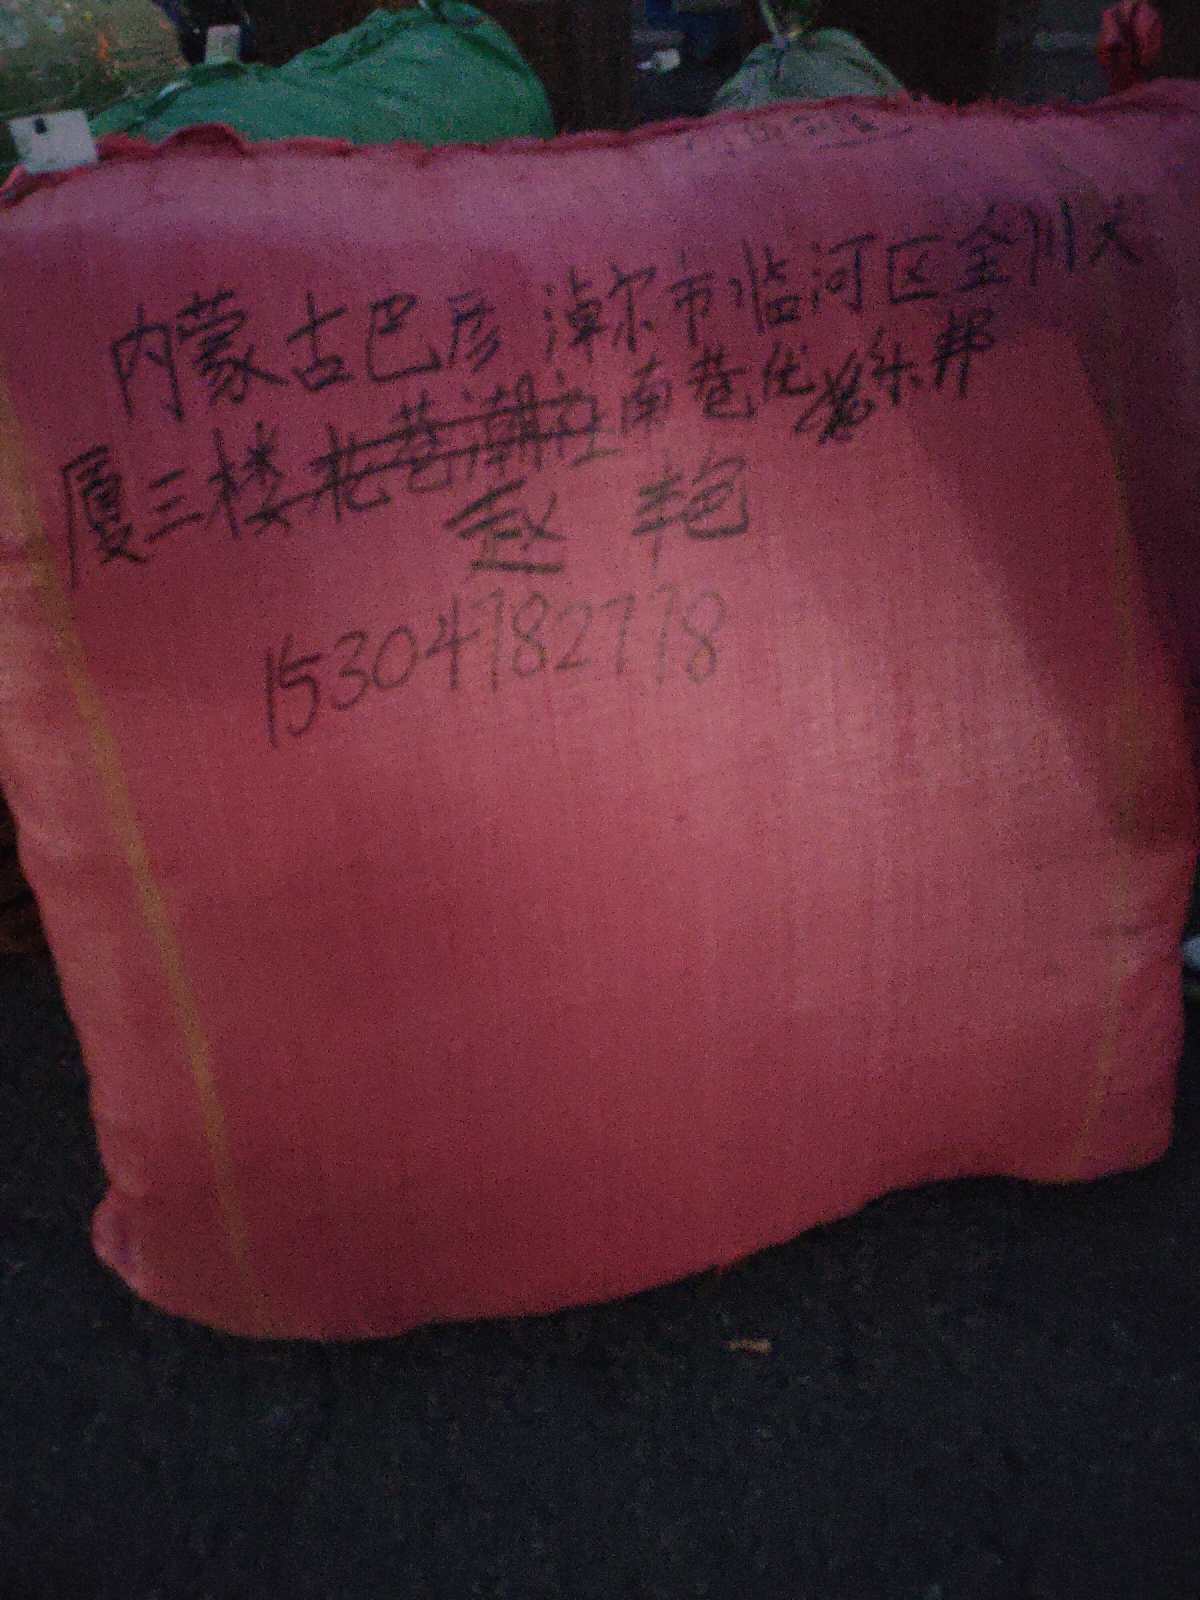 内蒙古巴彦淖尔市临河区金川大
厦三楼北巷潮庄南巷优乐邦
赵艳
15304782778